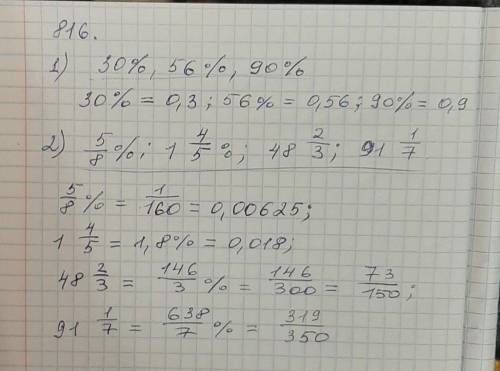 816.
1) 30%, 56%, 90%
30% = 0,3; 56% = 0,56; 90% = 0,9
2) 5/8 %; 1 4/5 %; 48 2/3; 91 1/7
5/8 % = 1/160 = 0,00625;
1 4/5 = 1,8% = 0,018;
48 2/3 = 146/3 % = 146/300 = 73/150;
91 1/7 = 638/7 % = 319/350